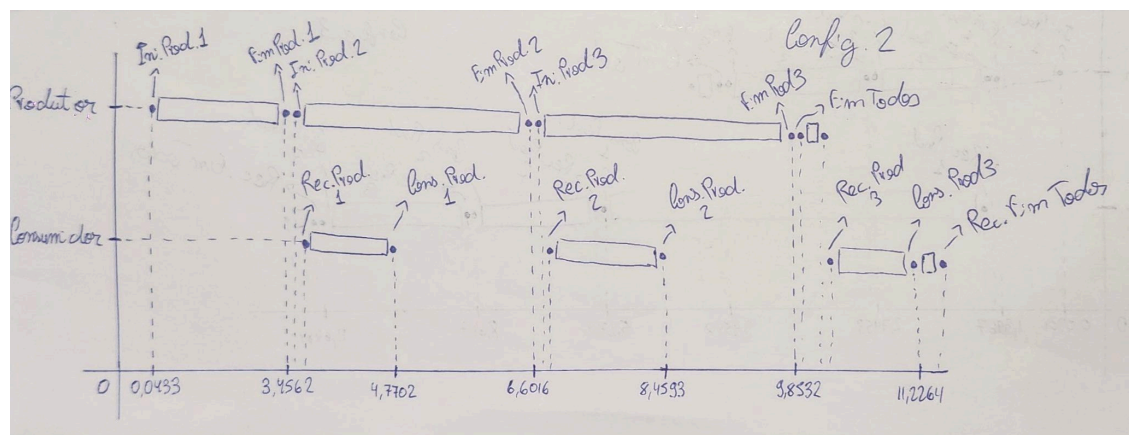 Config. 2
Ini.Prod.1
FimProd.1
Ini.Prod.2
FimProd.2
Ini.Prod3
FimProd3
FimTodos
Produtor
Rec.Prod.
1
Cons.Prod.
1
Rec.Prod.
2
Cons.Prod.
2
Rec.Prod
3
Cons.Prod3
Rec.FimTodos
Consumidor
0
0,0433
3,4562
4,7702
6,6016
8,4593
9,8532
11,2264